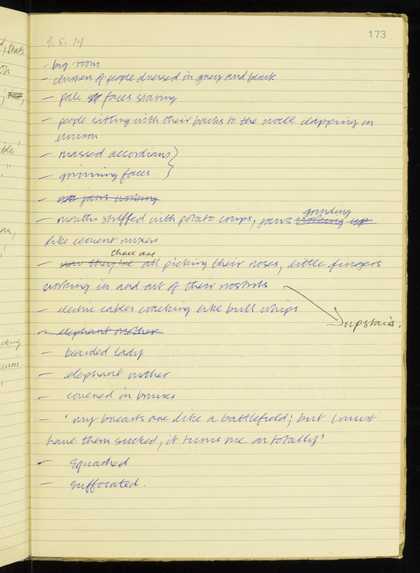 173
- big room
- dozens of people dressed in grey and black
- pale faces staring
- people sitting with their backs to the wall clapping in
unison
- massed accordians }
- grinning faces }
- jaws working
- mouths stuffed with potato crisps, jaws grinding working up
like cement mixers
- now they're there are all picking their noses, little fingers
working in and out of their nostrils
→ upstairs.
- electric cables cracking like bull whips
- elephant mother
- bearded lady
- elephant mother
- covered in bruises
- 'my breasts are like a battlefield; but I must
have them sucked, it turns me on totally!'
- squashed
- suffocated.